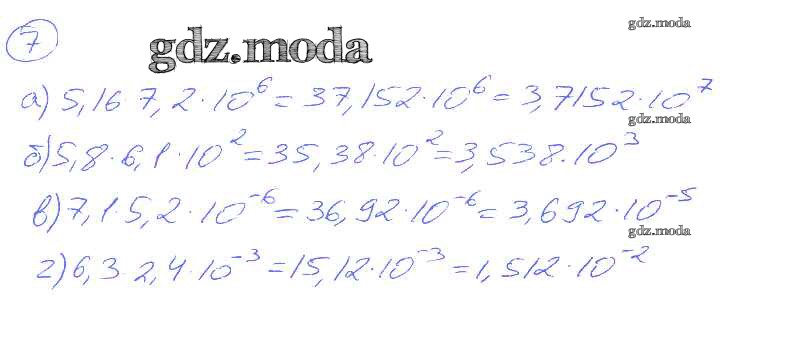 7
gdz.moda
gdz.moda
а) 5,16 7,2·10⁶ = 37,152·10⁶ = 3,7152·10⁷
gdz.moda
б) 5,8·6,1·10² = 35,38·10² = 3,538·10³
в) 7,1·5,2·10⁻⁶ = 36,92·10⁻⁶ = 3,692·10⁻⁵
gdz.moda
г) 6,3 2,4·10⁻³ = 15,12·10⁻³ = 1,512·10⁻²